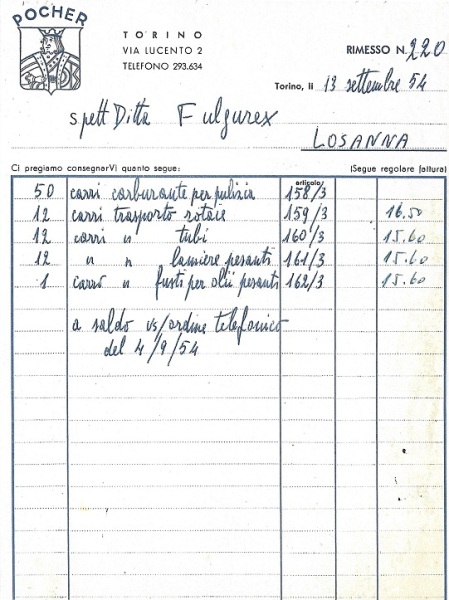 POCHER
TORINO
VIA LUCENTO 2
TELEFONO 293.634
RIMESSO N. 220
Torino, li 13 settembre 54
spett Ditta Fulgurex
LOSANNA
Ci pregiamo consegnarVi quanto segue: (Segue regolare fattura)
articolo
50 carri carburante per pulizia 158/3
12 carri trasporto rotaie 159/3 16.50
12 carri " tubi 160/3 15.60
12 " " lamiere pesanti 161/3 15.60
1 carro " fusti per olii pesanti 162/3 15.60
a saldo vs/ordine telefonico
del 4/9/54